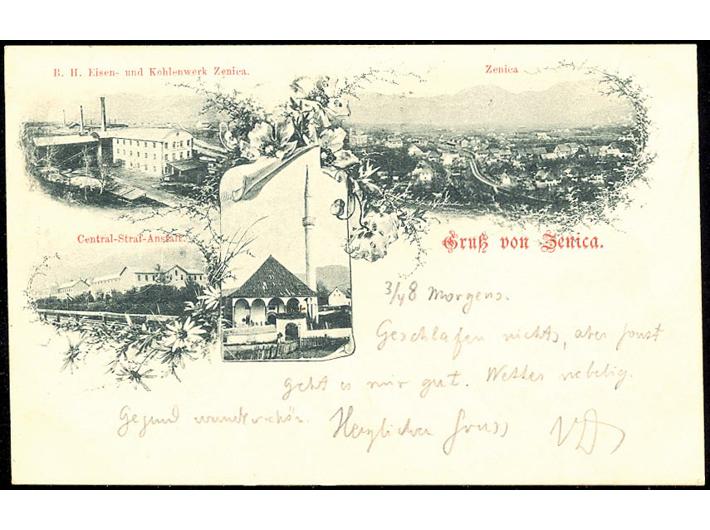 B. H. Eisen- und Kohlenwerk Zenica.
Zenica
Central-Straf-Anstalt.
Gruß von Zenica.
Morgens.
Geschlafen nichts, aber sonst
geht es mir gut. Wetter nebelig.
Gegend wunderschön. Herzlichen Gruss